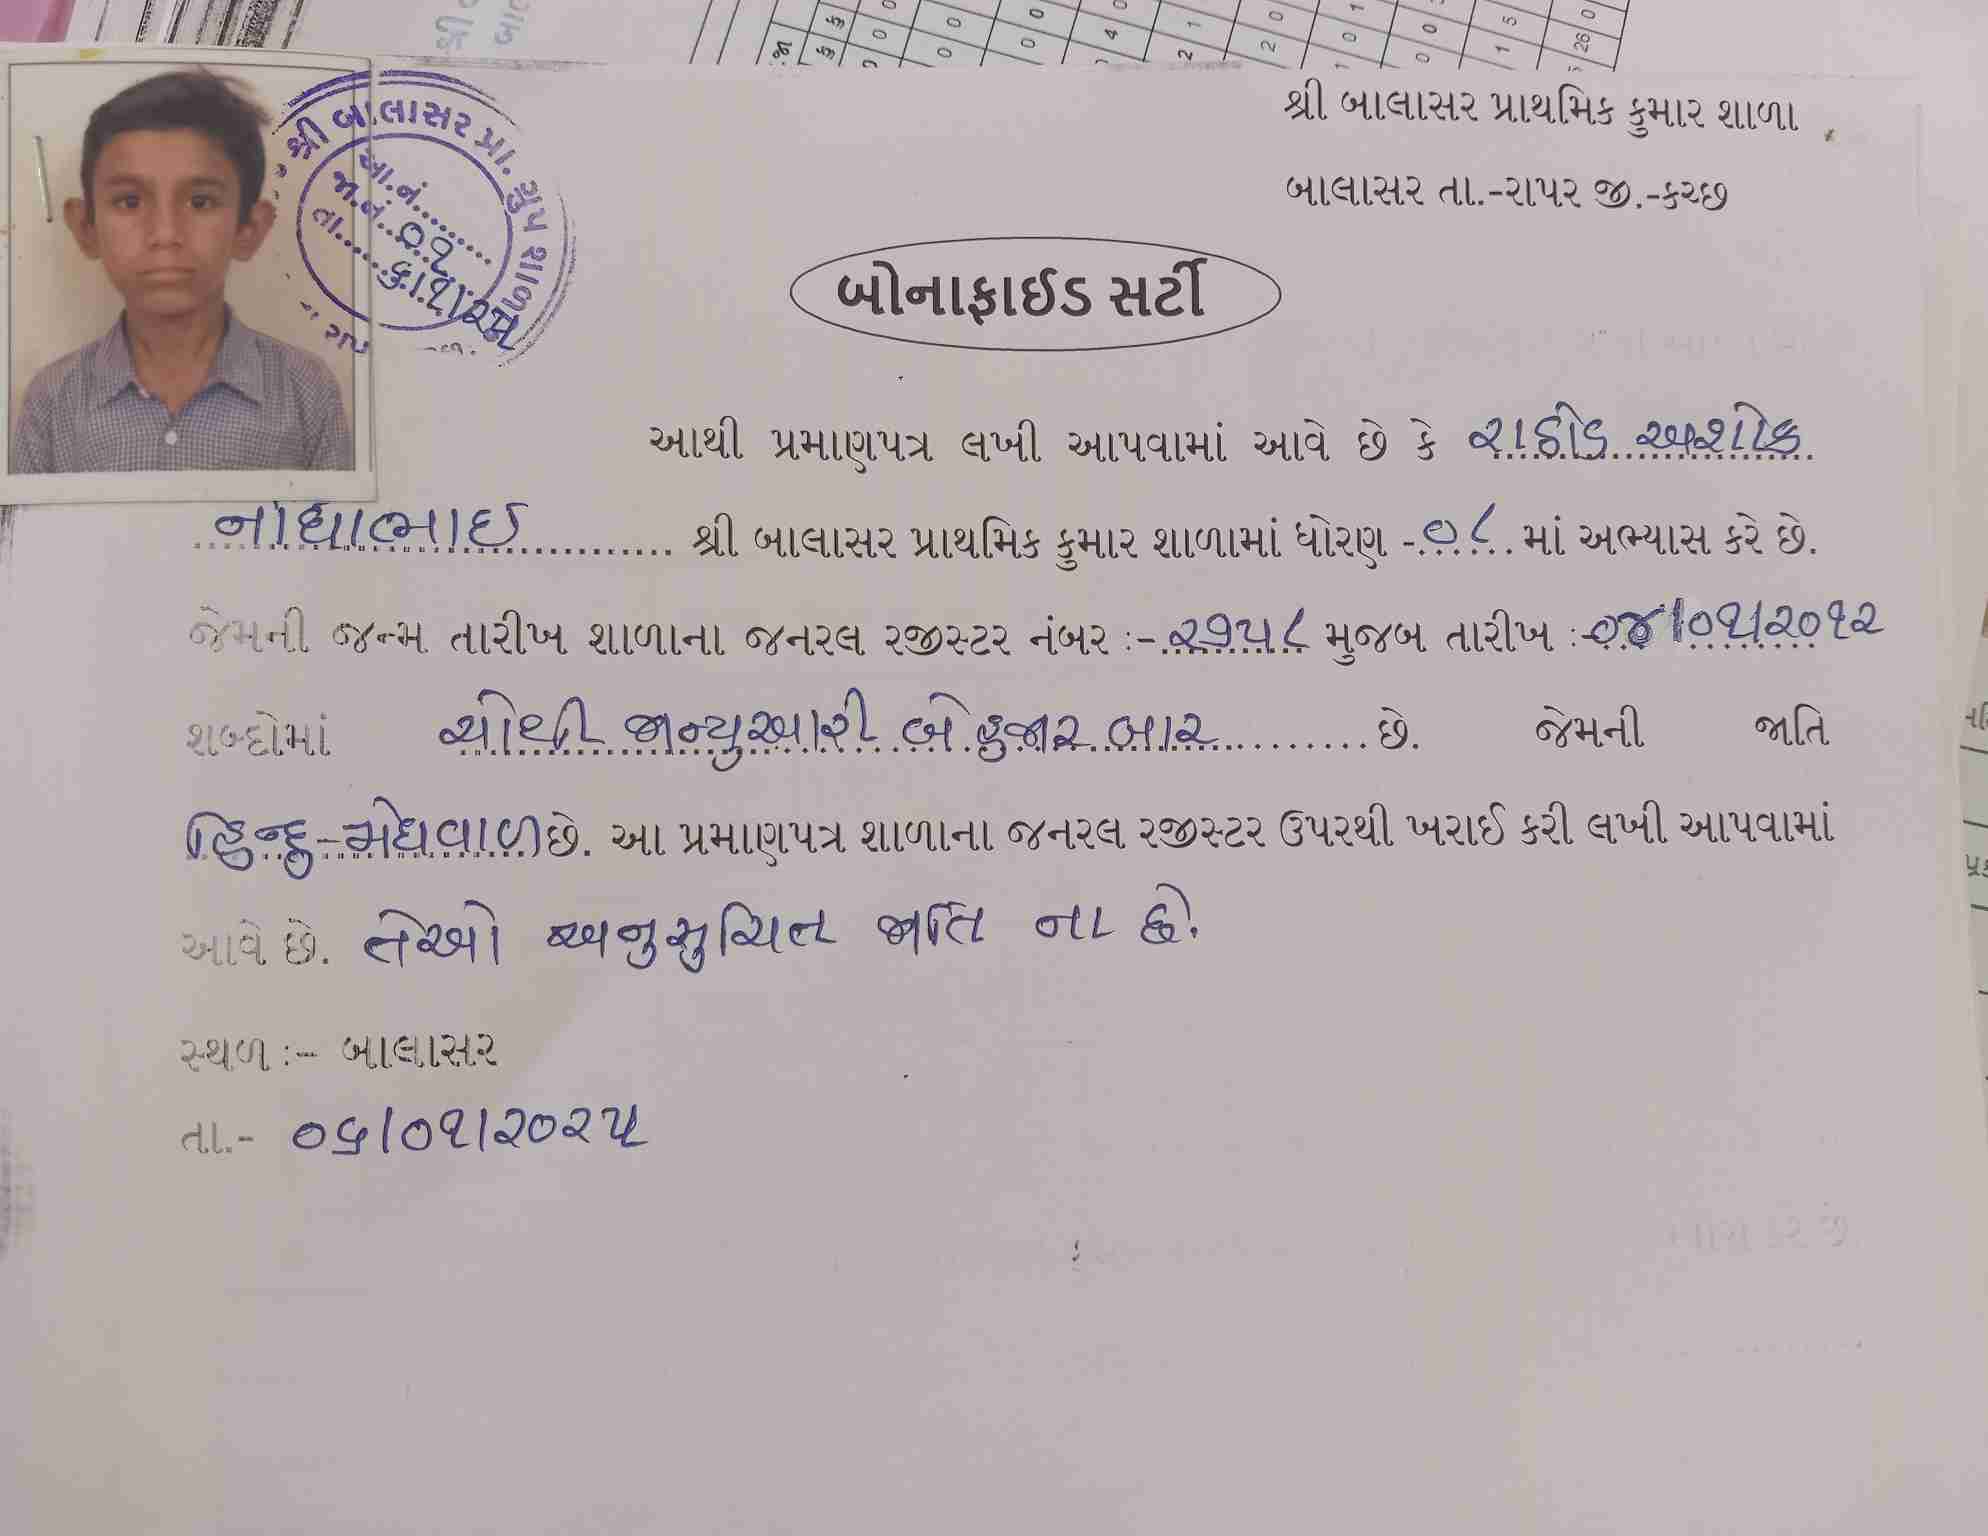 શ્રી બાલાસર પ્રાથમિક કુમાર શાળા
બાલાસર તા.-રાપર જી.-કચ્છ
શ્રી બાલાસર પ્રા. ગ્રુપ શાળા
આ.નં.........
જા.નં...૦૧
તા......૬/૧/૨૫
બોનાફાઈડ સર્ટી
આથી પ્રમાણપત્ર લખી આપવામાં આવે છે કે રાઠોડ અશોક
નાંઘાભાઈ શ્રી બાલાસર પ્રાથમિક કુમાર શાળામાં ધોરણ -૦૮ માં અભ્યાસ કરે છે.
જેમની જન્મ તારીખ શાળાના જનરલ રજીસ્ટર નંબર :- ૨૭૫૮ મુજબ તારીખ :-૦૪/૦૧/૨૦૧૨
શબ્દોમાં ચોથી જાન્યુઆરી બે હજાર બાર છે. જેમની જાતિ
હિન્દુ-મેઘવાળ છે. આ પ્રમાણપત્ર શાળાના જનરલ રજીસ્ટર ઉપરથી ખરાઈ કરી લખી આપવામાં
આવે છે. તેઓ અનુસુચિત જાતિ ના છે.
સ્થળ :- બાલાસર
તા.- ૦૬/૦૧/૨૦૨૫